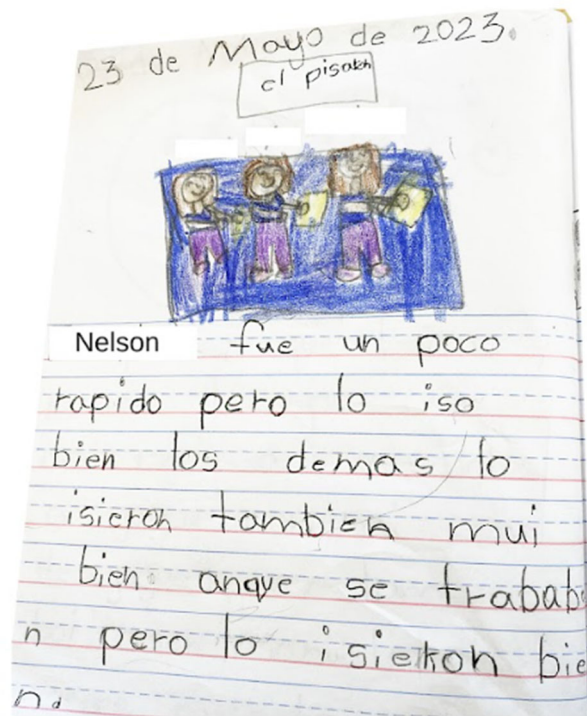 23 de Mayo de 2023.
el pisaton
Nelson fue un poco
rapido pero lo iso
bien los demas lo
isieron tambien mui
bien anque se trabab
n pero lo isieron bie
n.